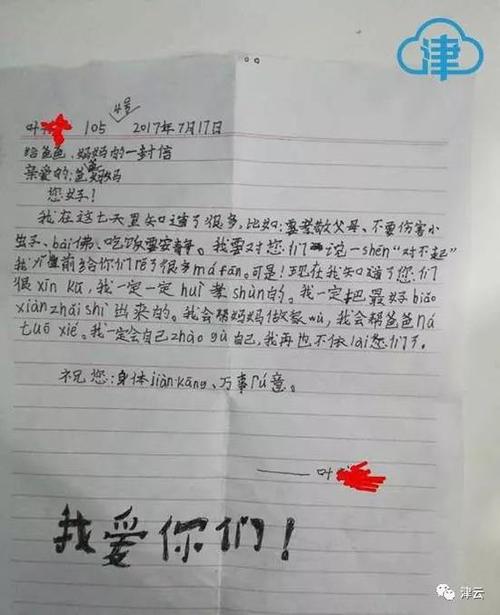 津
4号
叶 105 2017年7月17日
给爸爸、妈妈的一封信
亲爱的：爸爸妈妈
您好！
我在这七天里知道了很多，比如：要孝敬父母、不要伤害小
虫子、bài佛、吃饭要安静。我要对您们说一shēn“对不起”
我以前给你们了很多má fan。可是！现在我知道了您们
很xīn kǔ，我一定一定huì孝shùn的。我一定把最好biǎo
xiàn zhǎi shì出来的。我会帮妈妈做家wù，我会帮爸爸ná
tuō xié。我一定会自己zhào gù自己，我再也不依lài您们了。
祝您：身体jiàn kāng、万事rú意。
——叶
我爱你们！
津云